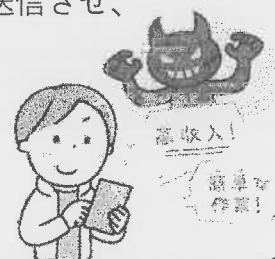 送信させ、
高収入!
簡単な
作業!